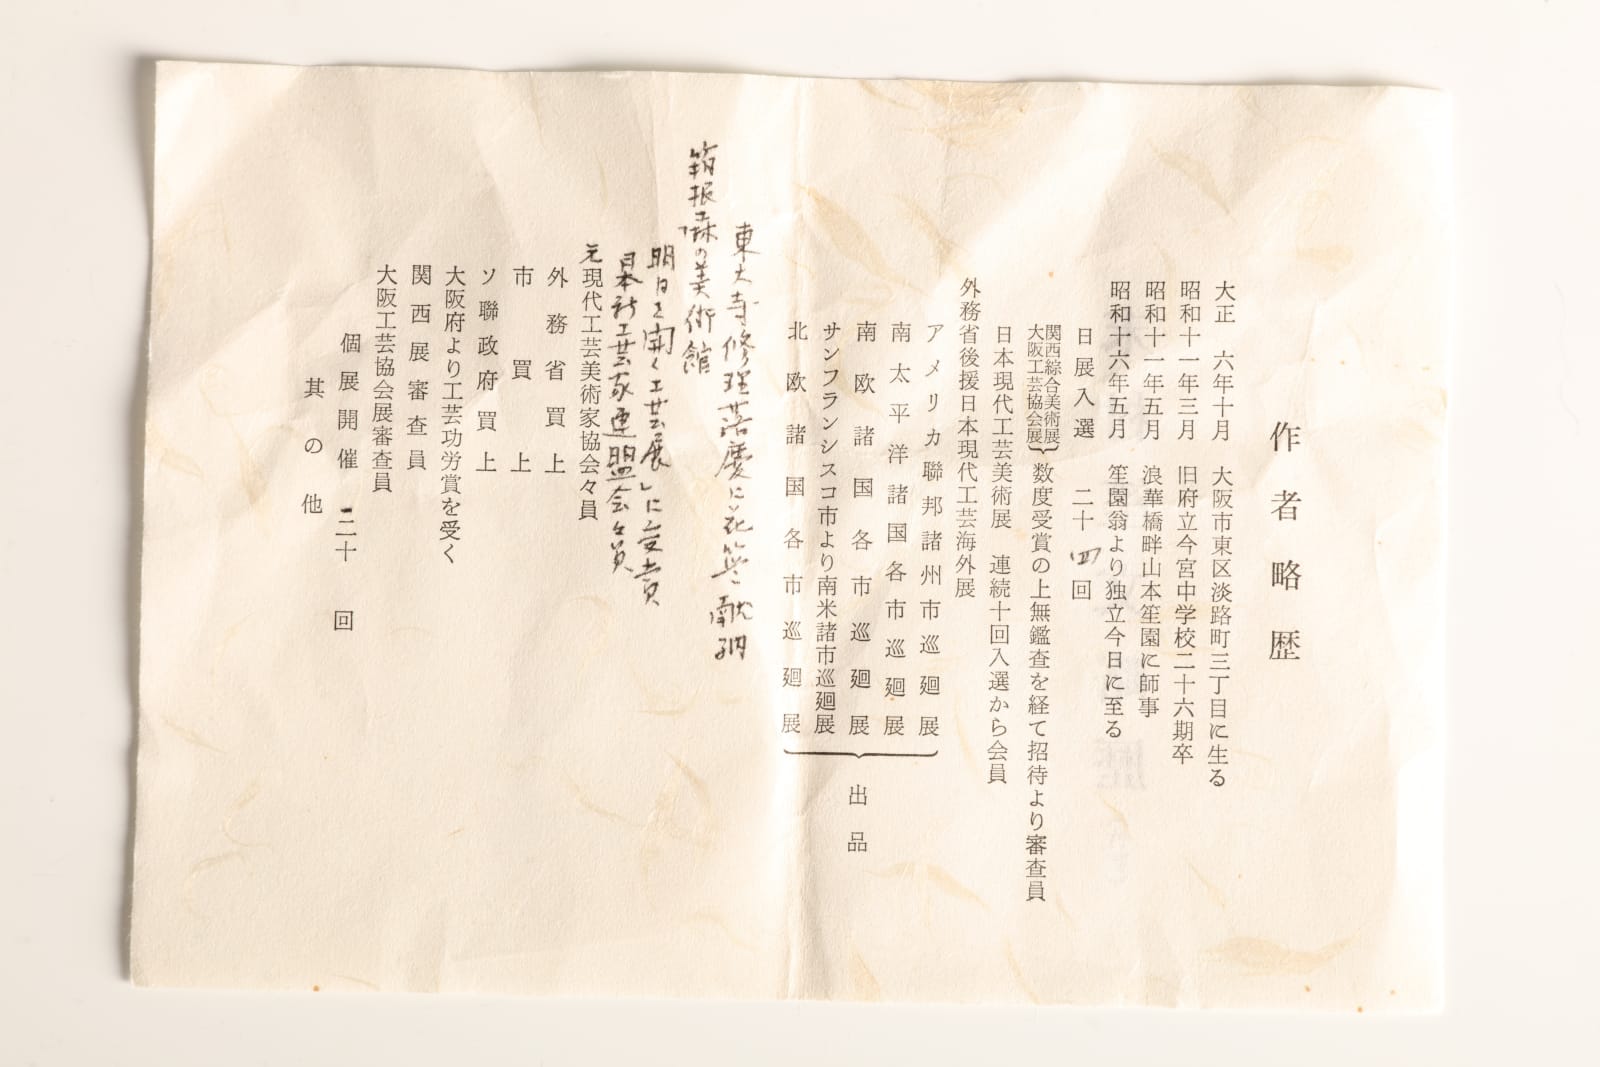 作者略歴
大正 六年十月 大阪市東区淡路町三丁目に生る
昭和十一年三月 旧府立今宮中学校二十六期卒
昭和十一年五月 浪華橋畔山本笙園に師事
昭和十六年五月 笙園翁より独立今日に至る
日展入選 二十四回
関西綜合美術展
大阪工芸協会展
数度受賞の上無鑑査を経て招待より審査員
日本現代工芸美術展 連続十回入選から会員
外務省後援日本現代工芸海外展
アメリカ聯邦諸州市巡廻展
南太平洋諸国各市巡廻展
南欧諸国各市巡廻展
サンフランシスコ市より南米諸市巡廻展
北欧諸国各市巡廻展
出品
東大寺修理落慶に花筥献納
箱根「森の美術館
明日を開く工芸展」に受賞
日本新工芸家連盟会々員
元現代工芸美術家協会々員
外務省買上
市買上
ソ聯政府買上
大阪府より工芸功労賞を受く
関西展審査員
大阪工芸協会展審査員
個展開催 二十 回
其の他